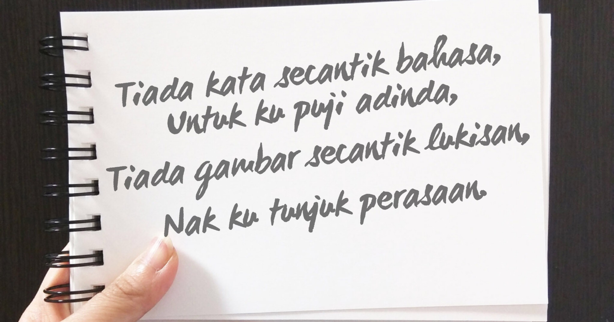 Tiada kata secantik bahasa,
Untuk ku puji adinda,
Tiada gambar secantik lukisan,
Nak ku tunjuk perasaan.